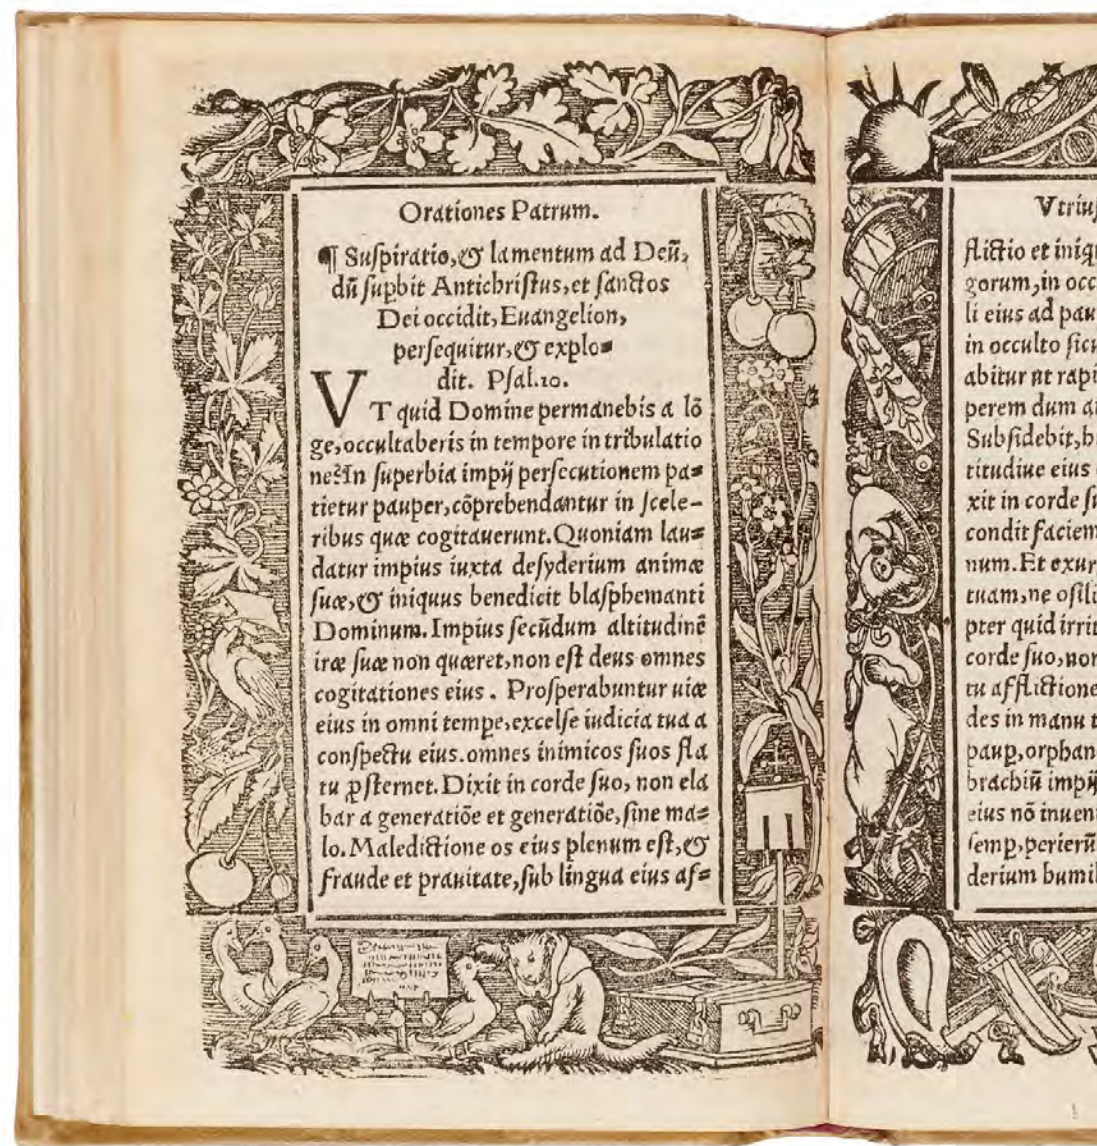 Orationes Patrum.
¶ Suſpiratio, & lamentum ad Deũ,
dũ ſupbit Antichriſtus, et ſanctos
Dei occidit, Euangelion,
perſequitur, & explo=
dit. Pſal.10.
VT quid Domine permanebis a lõ
ge, occultaberis in tempore in tribulatio
ne? In ſuperbia impij perſecutionem pa=
tietur pauper, cõprehendantur in ſcele-
ribus quæ cogitauerunt. Quoniam lau=
datur impius iuxta deſyderium animæ
ſuæ, & iniquus benedicit blaſphemanti
Dominum. Impius ſecũdum altitudinẽ
iræ ſuæ non quæret, non eſt deus omnes
cogitationes eius. Proſperabuntur uiæ
eius in omni tempe, excelſe iudicia tua a
conſpectu eius. omnes inimicos ſuos fla
tu ꝓſternet. Dixit in corde ſuo, non ela
bar a generatiõe et generatiõe, ſine ma=
lo. Maledictione os eius plenum eſt, &
fraude et prauitate, ſub lingua eius af=
Vtriuſ
flictio et iniqu
gorum, in occ
li eius ad pau
in occulto ſicu
abitur ut rapi
perem dum a
Subſidebit, h
titudine eius
xit in corde ſu
condit faciem
num. Et exur
tuam, ne
pter quid irrit
corde ſuo, non
tu afflictione
des in manu t
paup, orphan
brachiũ impij
eius nõ inuen
ſemp, perierũ
derium humil